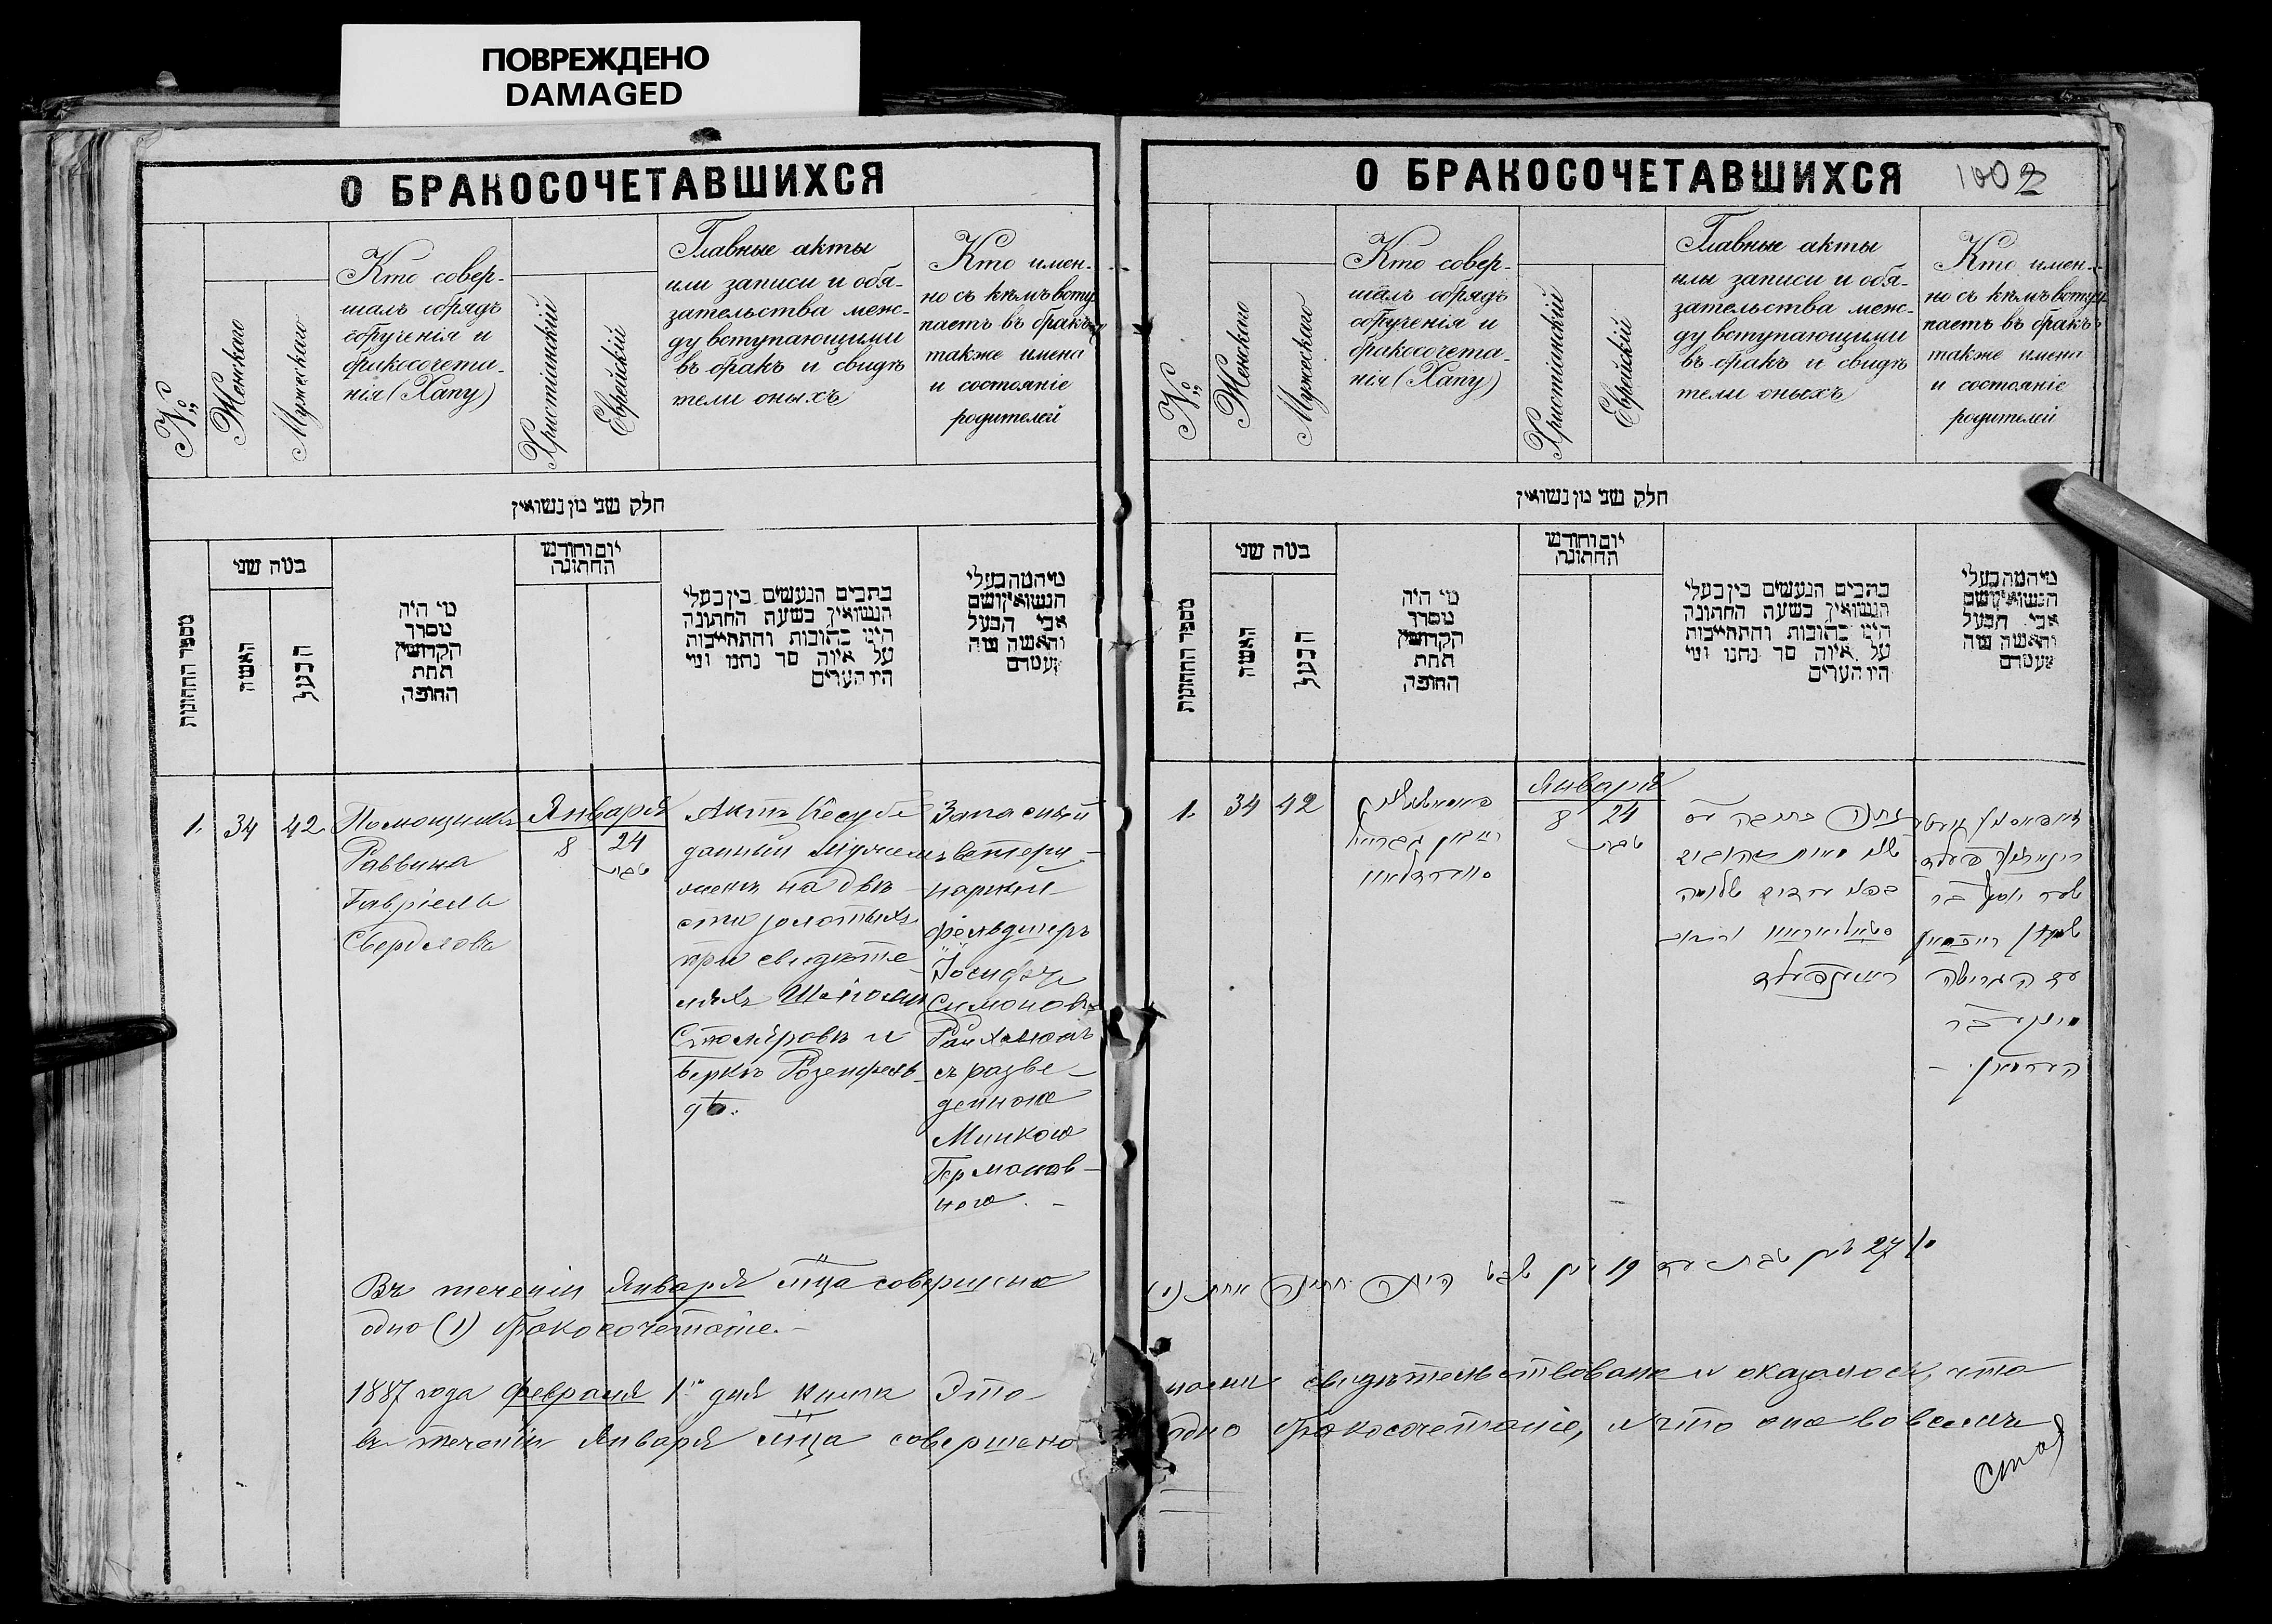 ПОВРЕЖДЕНО
DAMAGED
О БРАКОСОЧЕТАВШИХСЯ
№
Женскаго
Мужескаго
Кто совер-
шалъ обрядъ
обрученія и
бракосочета-
нія (Хапу)
Христіанскій
Еврейскій
Главные акты
или записи и обя-
зательства меж-
ду вступающими
въ бракъ и свидѣ
тели оныхъ
Кто имен-
но съ кѣмъ всту
паетъ въ бракъ
также имена
и состояніе
родителей
חלק שני מן נשואין
מספר החתונות
במה שני
האשה
הבעל
מי היה
מסדר
הקדושין
תחת
החופה
יום וחודש
החתונה
כתבים הנעשים בין בעלי
הנשואין בשעת החתונה
היינו כתובות והתחייבות
על איזה סך נתנו ומי
היו העדים
מי המה בעלי
הנשואין ושם
אבי הבעל
והאשה ומה
מעמדם
1.
34
42
Помощникъ
Раввина
Гавріель
Свердловъ
Января
8
24
טבת
Актъ Кесубе
данный мужемъ
женѣ на двѣ
сти золотыхъ
при свидѣте-
ляхъ Шлиома
Столяровъ и
Беркъ Розенфель
дъ.
Запасный
ветери-
нарный
фельдшеръ
Іосифъ
Симоновъ
Райхманъ
съ разве-
денною
Минкою
Германов-
ною. -
Въ теченіи Января м-ца совершено
одно (1) бракосочетаніе. -
1887 года Февраля 1го дня книга Эта
въ теченіи Января м-ца совершено
О БРАКОСОЧЕТАВШИХСЯ
1002
№
Женскаго
Мужескаго
Кто совер-
шалъ обрядъ
обрученія и
бракосочета-
нія (Хапу)
Христіанскій
Еврейскій
Главные акты
или записи и обя-
зательства меж-
ду вступающими
въ бракъ и свидѣ
тели оныхъ
Кто имен-
но съ кѣмъ всту
паетъ въ бракъ
также имена
и состояніе
родителей
חלק שני מן נשואין
מספר החתונות
במה שני
האשה
הבעל
מי היה
מסדר
הקדושין
תחת
החופה
יום וחודש
החתונה
כתבים הנעשים בין בעלי
הנשואין בשעת החתונה
היינו כתובות והתחייבות
על איזה סך נתנו ומי
היו העדים
מי המה בעלי
הנשואין ושם
אבי הבעל
והאשה ומה
מעמדם
1.
34
42
גבריאל
סווערדלאוו
Января
8
24
טבת
כתובה
מאות זהובים
שלמה
סטאליאראוו
ראזענפעלד
יוסף בר
שמעון רייכמאן
עם הגרושה
מינקע בר
הערמאן. -
מן 27 טבת עד 19 שבט היתה חתונה אחת (1)
нами свидѣтельствована и оказалось, что
одно бракосочетаніе, и что она во всемъ